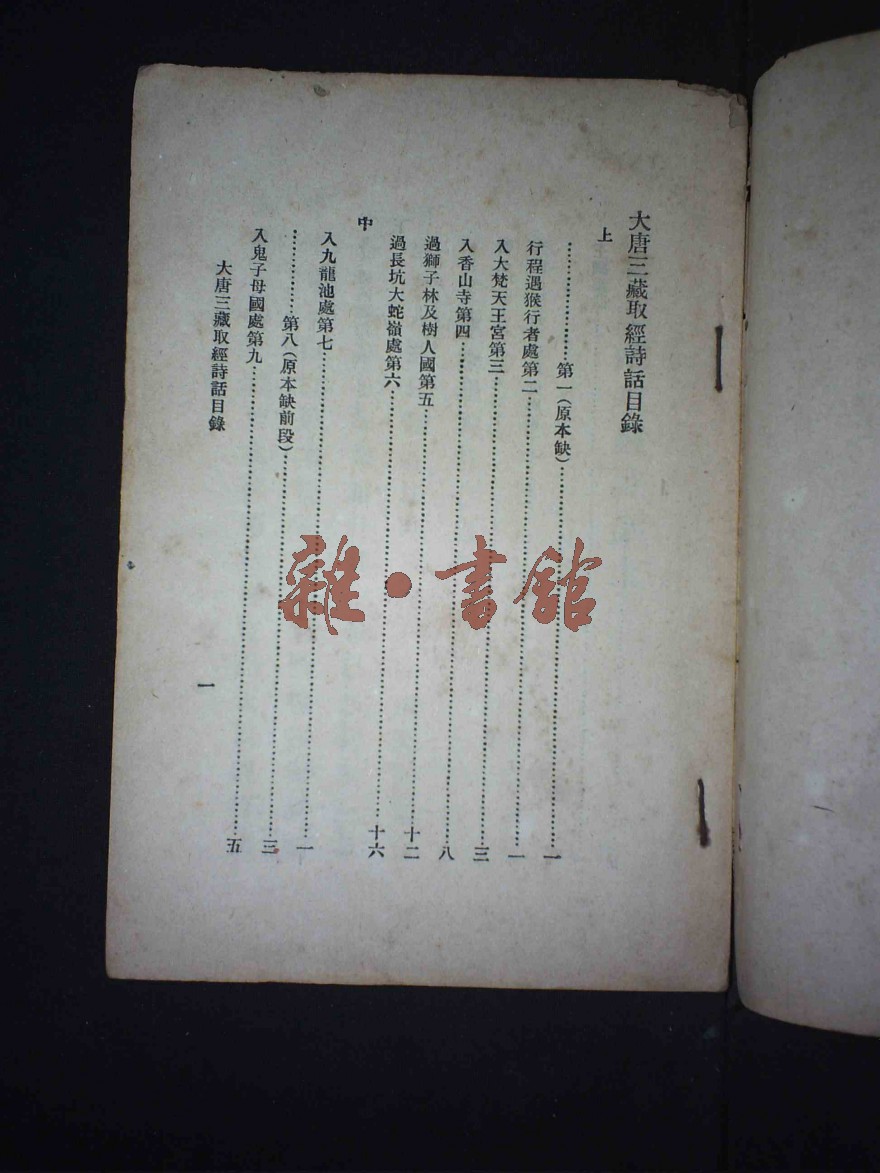 大唐三藏取經詩話目錄
上
………………第一（原本缺）……………………………………一
行程遇猴行者處第二……………………………………一
入大梵天王宮第三……………………………………三
入香山寺第四……………………………………八
過獅子林及樹人國第五……………………………………十二
過長坑大蛇嶺處第六……………………………………十六
中
入九龍池處第七……………………………………一
…………第八（原本缺前段）……………………………………三
入鬼子母國處第九……………………………………五
大唐三藏取經詩話目錄
一
雜·書館